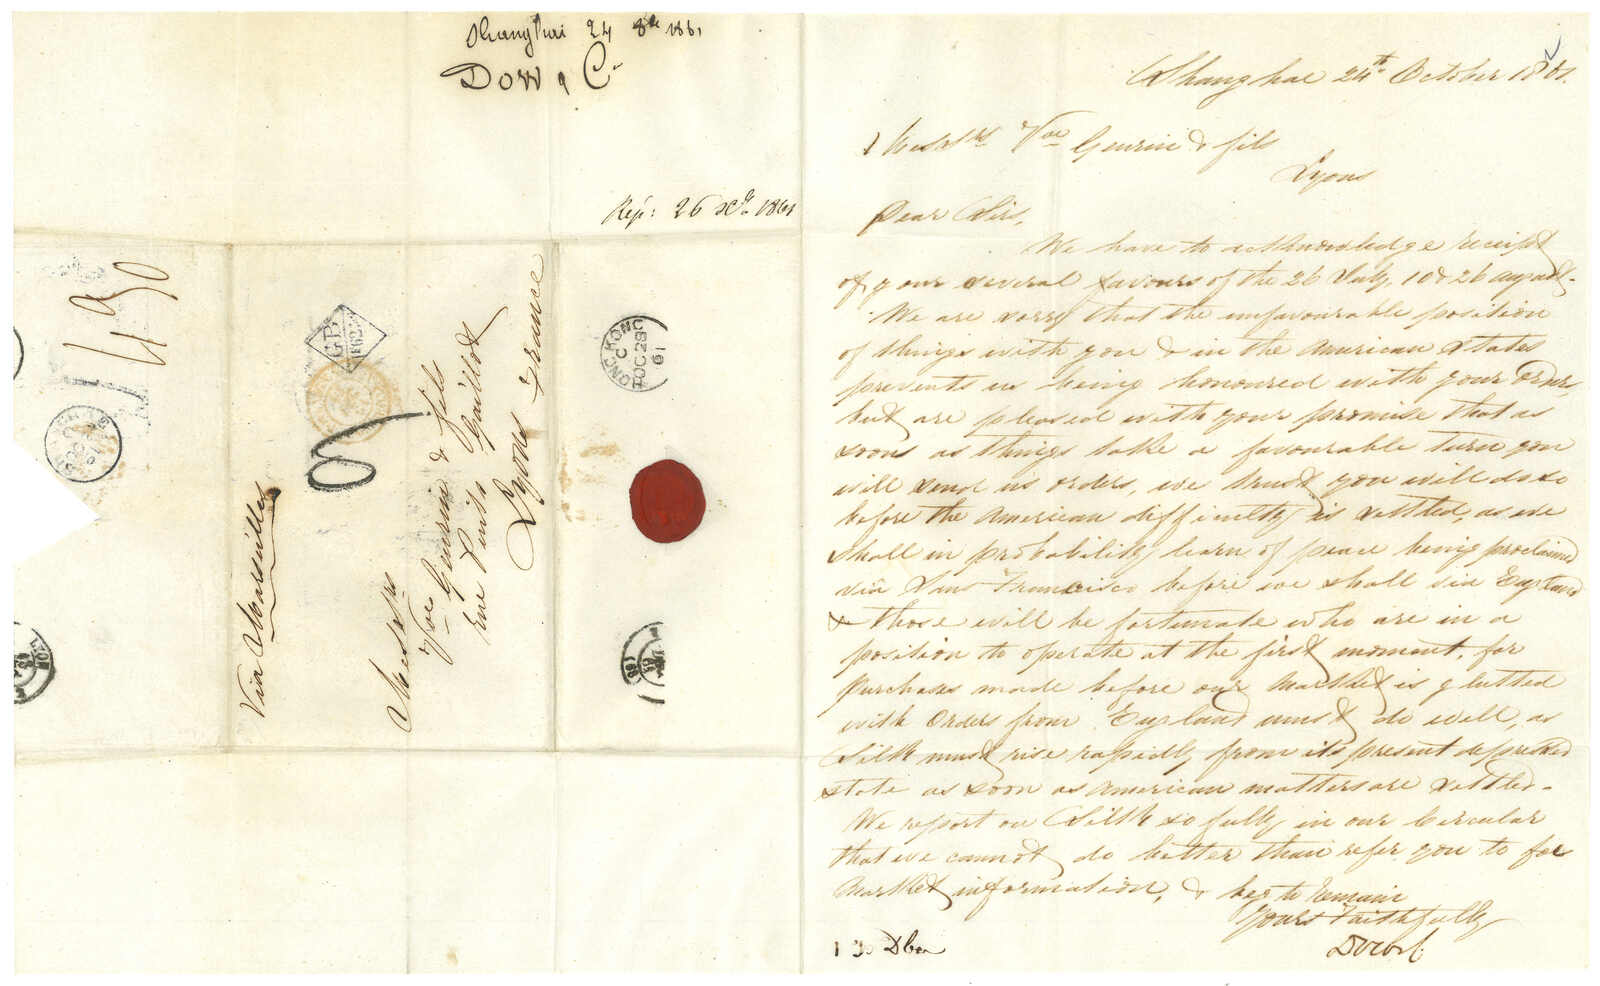 Shanghai 24 8bre 1861
Dow & Co
Rep: 26 Xbre 1861
490
GB
1F62
HONG KONG
C
OC 28
61
SHANGHAE
LYON
Via Marseilles
Messrs
Vve Guerin & fils
rue Puits Gaillot
Lyons France
Shanghae 24th October 1861.
Messrs Vve Guerin & fils
Lyons
Dear Sirs,
We have to acknowledge receipt
of your several favours of the 26 July, 10 & 26 august.
We are sorry that the unfavourable position
of things with you & in the American States
prevents us being honoured with your orders,
but are pleased with your promise that as
soon as things take a favourable turn you
will send us orders, we trust you will do so
before the American difficulty is settled, as we
shall in probability learn of peace being proclaimed
via San Francisco before we shall via England
& those will be fortunate who are in a
position to operate at the first moment, for
purchases made before our market is glutted
with orders from England must do well, as
Silk must rise rapidly from its present depressed
state as soon as American matters are settled.
We report on Silk so fully in our Circular
that we cannot do better than refer you to for
market information, & beg to remain
Yours Faithfully